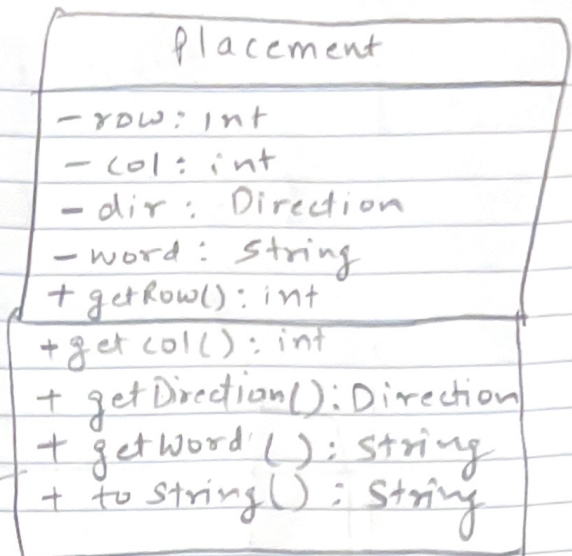 Placement
- row: int
- col: int
- dir: Direction
- word: String
+ getRow(): int
+ getcol(): int
+ getDirection(): Direction
+ getWord(): String
+ to String(): String